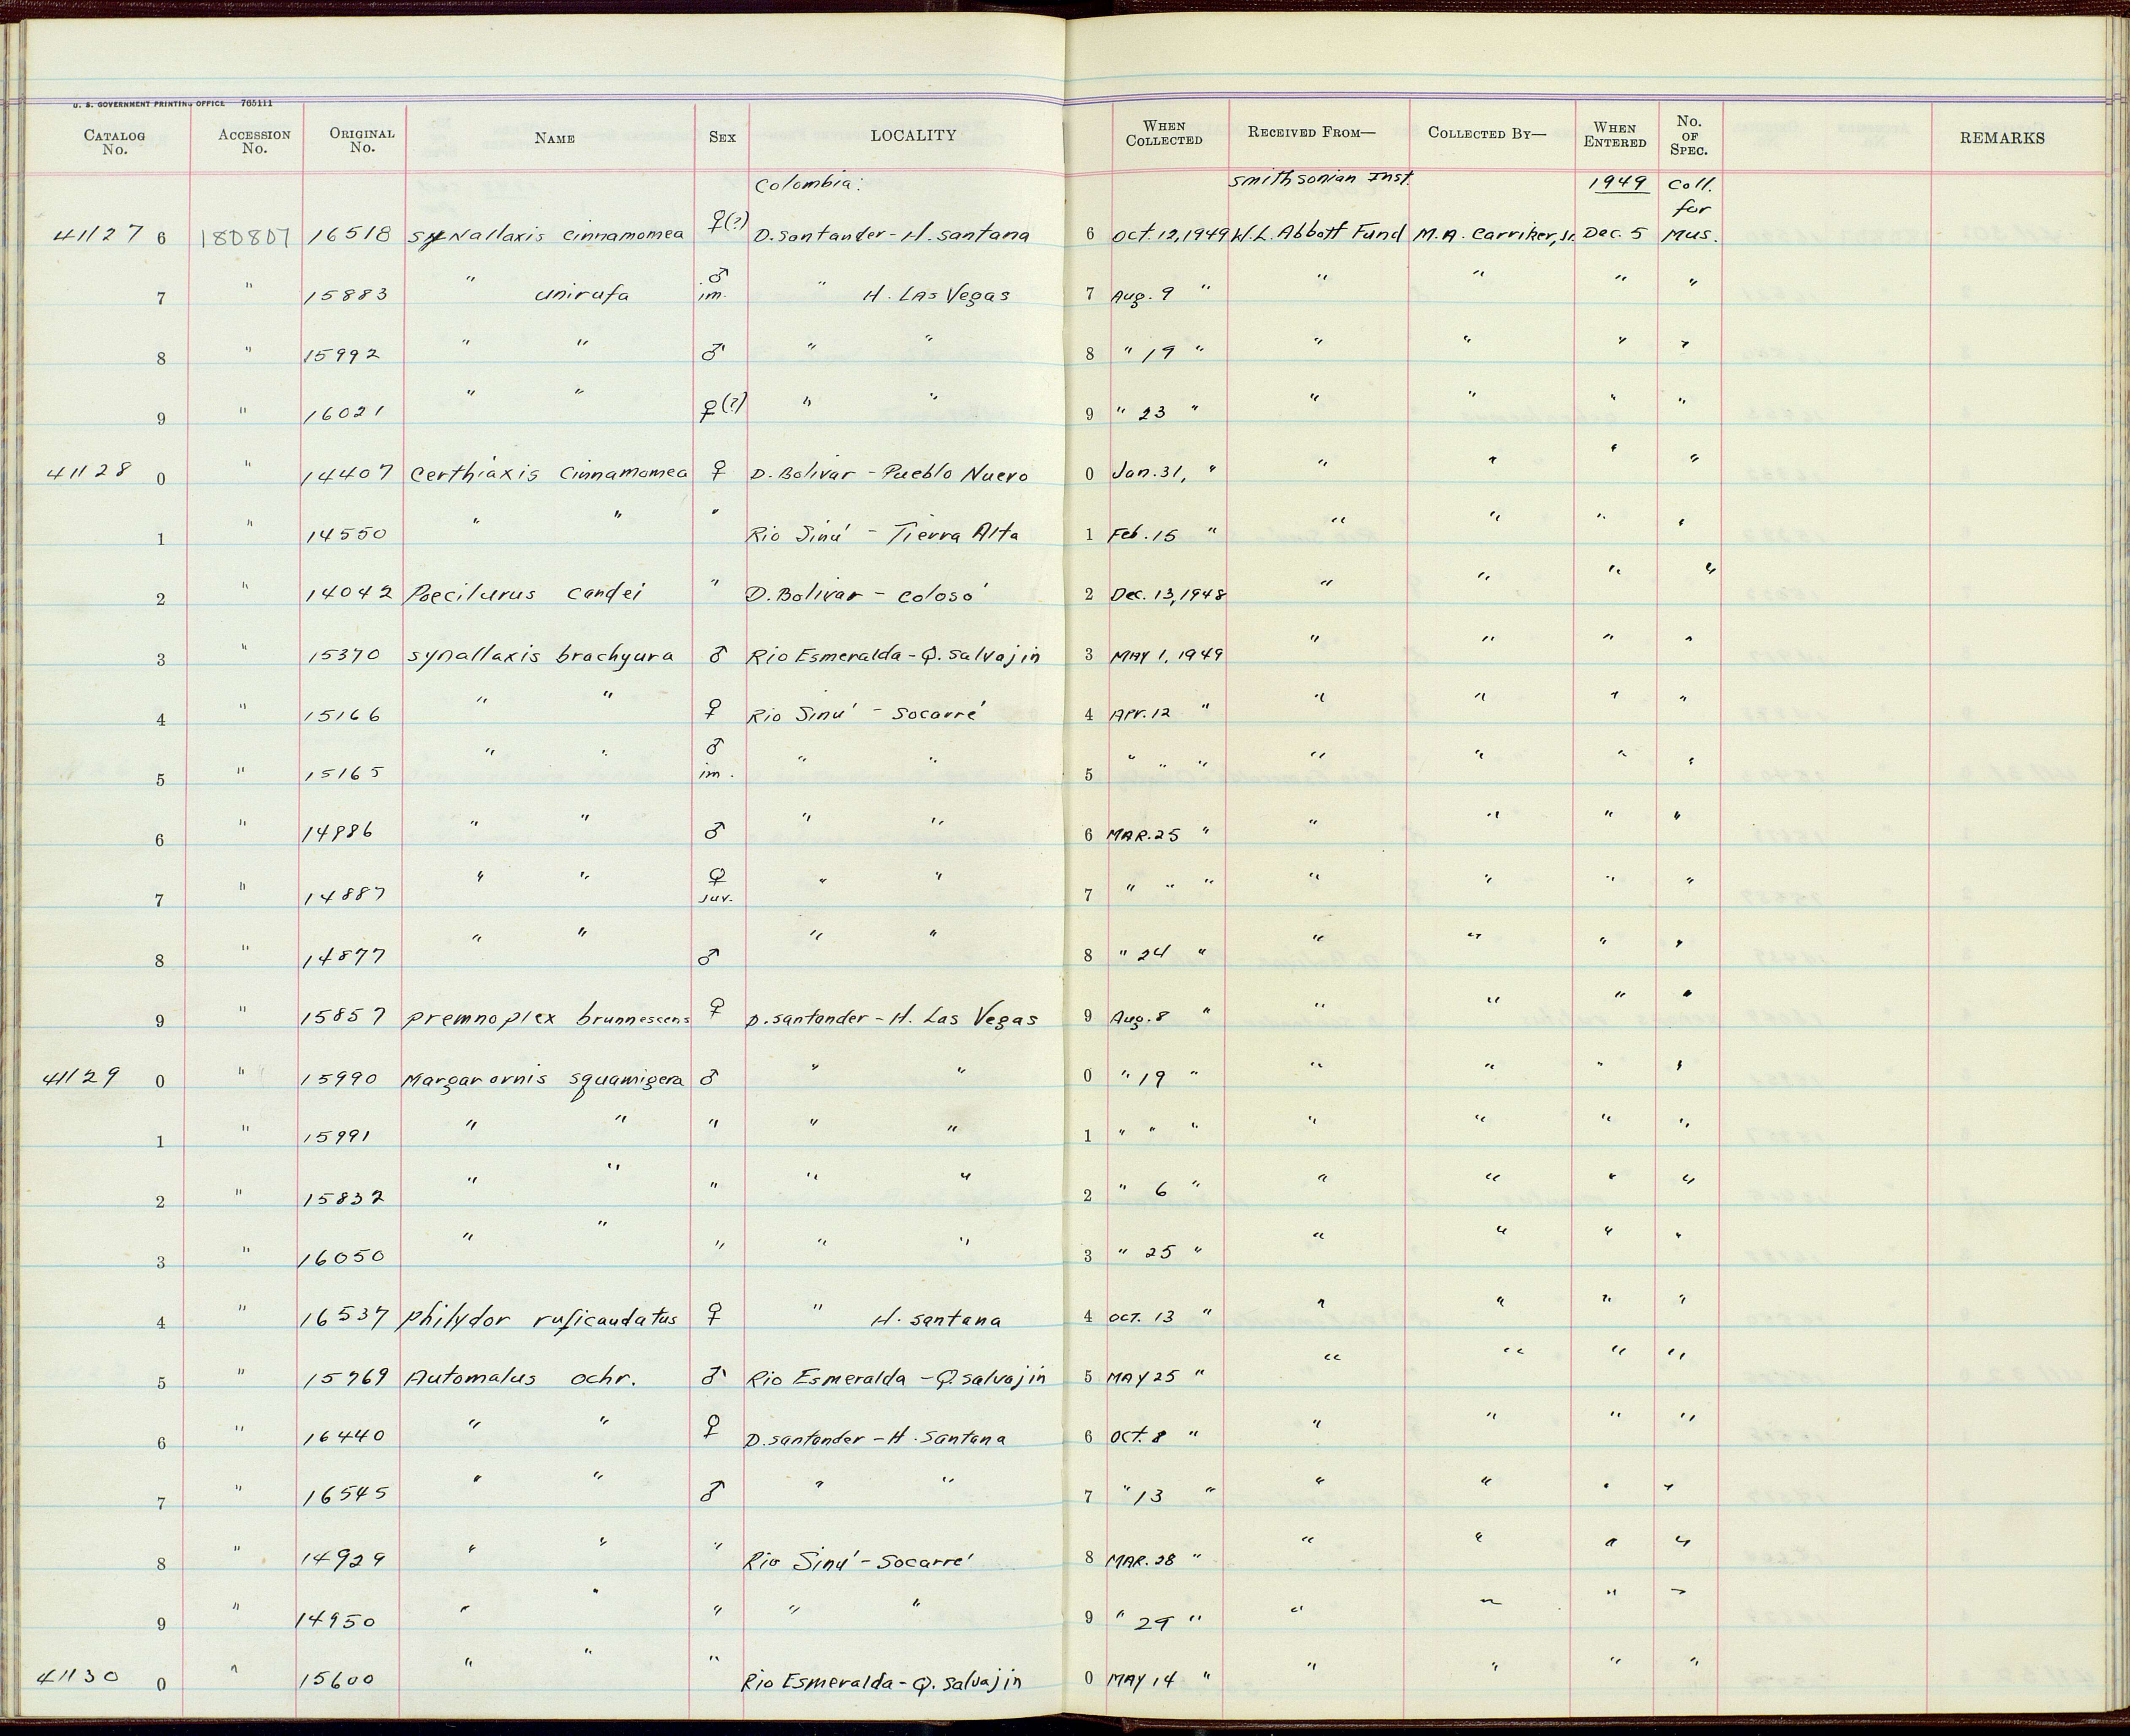 U. S. GOVERNMENT PRINTING OFFICE 765111
CATALOG No. ACCESSION No. ORIGINAL No. NAME SEX LOCALITY WHEN COLLECTED RECEIVED FROM— COLLECTED BY— WHEN ENTERED No. OF SPEC. REMARKS
Colombia: Smithsonian Inst. 1949 Coll. for
41127 6 180807 16518 Synallaxis cinnamomea ♀(?) D. Santander - H. Santana 6 Oct. 12, 1949 W. L. Abbott Fund M. A. Carriker, Jr. Dec. 5 Mus.
7 " 15883 " unirufa ♂ im. " H. Las Vegas 7 Aug. 9 " " " " "
8 " 15992 " " ♂ " " 8 " 19 " " " " "
9 " 16021 " " ♀(?) " " 9 " 23 " " " " "
41128 0 " 14407 Certhiaxis cinnamomea ♀ D. Bolivar - Pueblo Nuevo 0 Jan. 31, " " " " "
1 " 14550 " " " Rio Sinú - Tierra Alta 1 Feb. 15 " " " " "
2 " 14042 Poecilurus candei " D. Bolivar - Colosó 2 Dec. 13, 1948 " " " "
3 " 15370 Synallaxis brachyura ♂ Rio Esmeralda - Q. Salvajin 3 MAY 1, 1949 " " " "
4 " 15166 " " ♀ Rio Sinú - Socarré 4 Apr. 12 " " " " "
5 " 15165 " " ♂ im. " " 5 " " " " " " "
6 " 14886 " " ♂ " " 6 MAR. 25 " " " " "
7 " 14887 " " ♀ Juv. " " 7 " " " " " " "
8 " 14877 " " ♂ " " 8 " 24 " " " " "
9 " 15857 Premnoplex brunnescens ♀ D. Santander - H. Las Vegas 9 Aug. 8 " " " " "
41129 0 " 15990 Margarornis squamigera ♂ " " 0 " 19 " " " " "
1 " 15991 " " " " " 1 " " " " " " "
2 " 15832 " " " " " 2 " 6 " " " " "
3 " 16050 " " " " " 3 " 25 " " " " "
4 " 16537 Philydor ruficaudatus ♀ " H. Santana 4 Oct. 13 " " " " "
5 " 15769 Automalus ochr. ♂ Rio Esmeralda - Q. Salvajin 5 MAY 25 " " " " "
6 " 16440 " " ♀ D. Santander - H. Santana 6 Oct. 8 " " " " "
7 " 16545 " " ♂ " " 7 " 13 " " " " "
8 " 14929 " " " Rio Sinú - Socarré 8 MAR. 28 " " " " "
9 " 14950 " " " " " 9 " 29 " " " " "
41130 0 " 15600 " " " Rio Esmeralda - Q. Salvajin 0 MAY 14 " " " " "